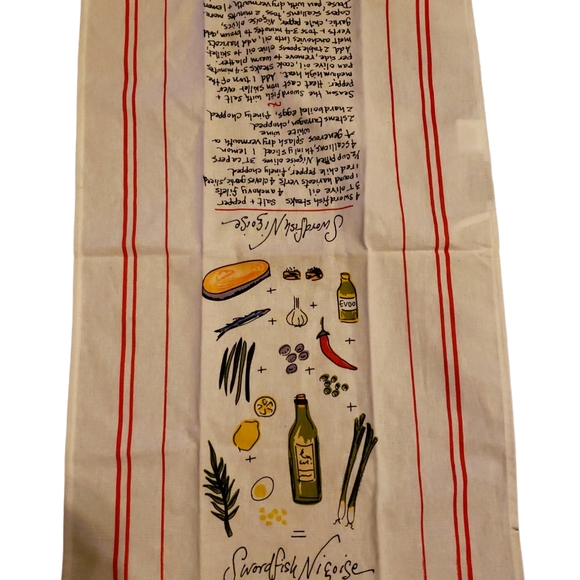 Swordfish Niçoise
4 swordfish steaks Salt + pepper
3 T olive oil 4 anchovy filets
1 pound haricots verts 4 cloves garlic, sliced
1 red chile pepper, finely chopped
½ cup pitted Niçoise olives 3T capers
4 scallions, thinly sliced 1 lemon
A generous splash dry vermouth or
white wine
2 stems tarragon, chopped
2 hard boiled eggs, finely chopped
Season the swordfish with salt +
pepper. Heat cast iron skillet over
medium high heat. Add 1 turn of the
pan olive oil, cook steaks 3-4 minutes
per side, remove to warm platter.
Add 2 tablespoons olive oil to skillet,
melt anchovies into oil. Add haricots
verts + toss 3-4 minutes to brown, add
garlic, chile pepper, Niçoise olives,
capers, scallions, 2 minutes more.
Douse pan with dry vermouth,
EVOO
Swordfish Niçoise